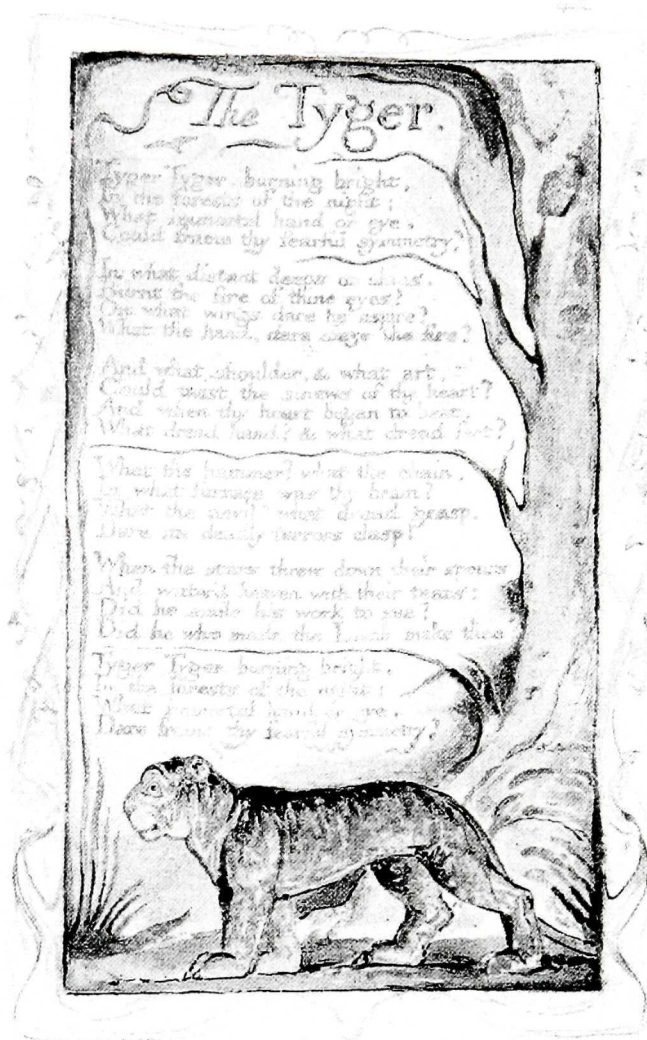 The Tyger.
Tyger Tyger, burning bright,
In the forests of the night;
What immortal hand or eye,
Could frame thy fearful symmetry?
In what distant deeps or skies,
Burnt the fire of thine eyes?
On what wings dare he aspire?
What the hand, dare sieze the fire?
And what shoulder, & what art,
Could twist the sinews of thy heart?
And when thy heart began to beat,
What dread hand? & what dread feet?
What the hammer? what the chain,
In what furnace was thy brain?
What the anvil? what dread grasp,
Dare its deadly terrors clasp!
When the stars threw down their spears
And water'd heaven with their tears:
Did he smile his work to see?
Did he who made the Lamb make thee
Tyger Tyger burning bright,
In the forests of the night:
What immortal hand or eye,
Dare frame thy fearful symmetry?